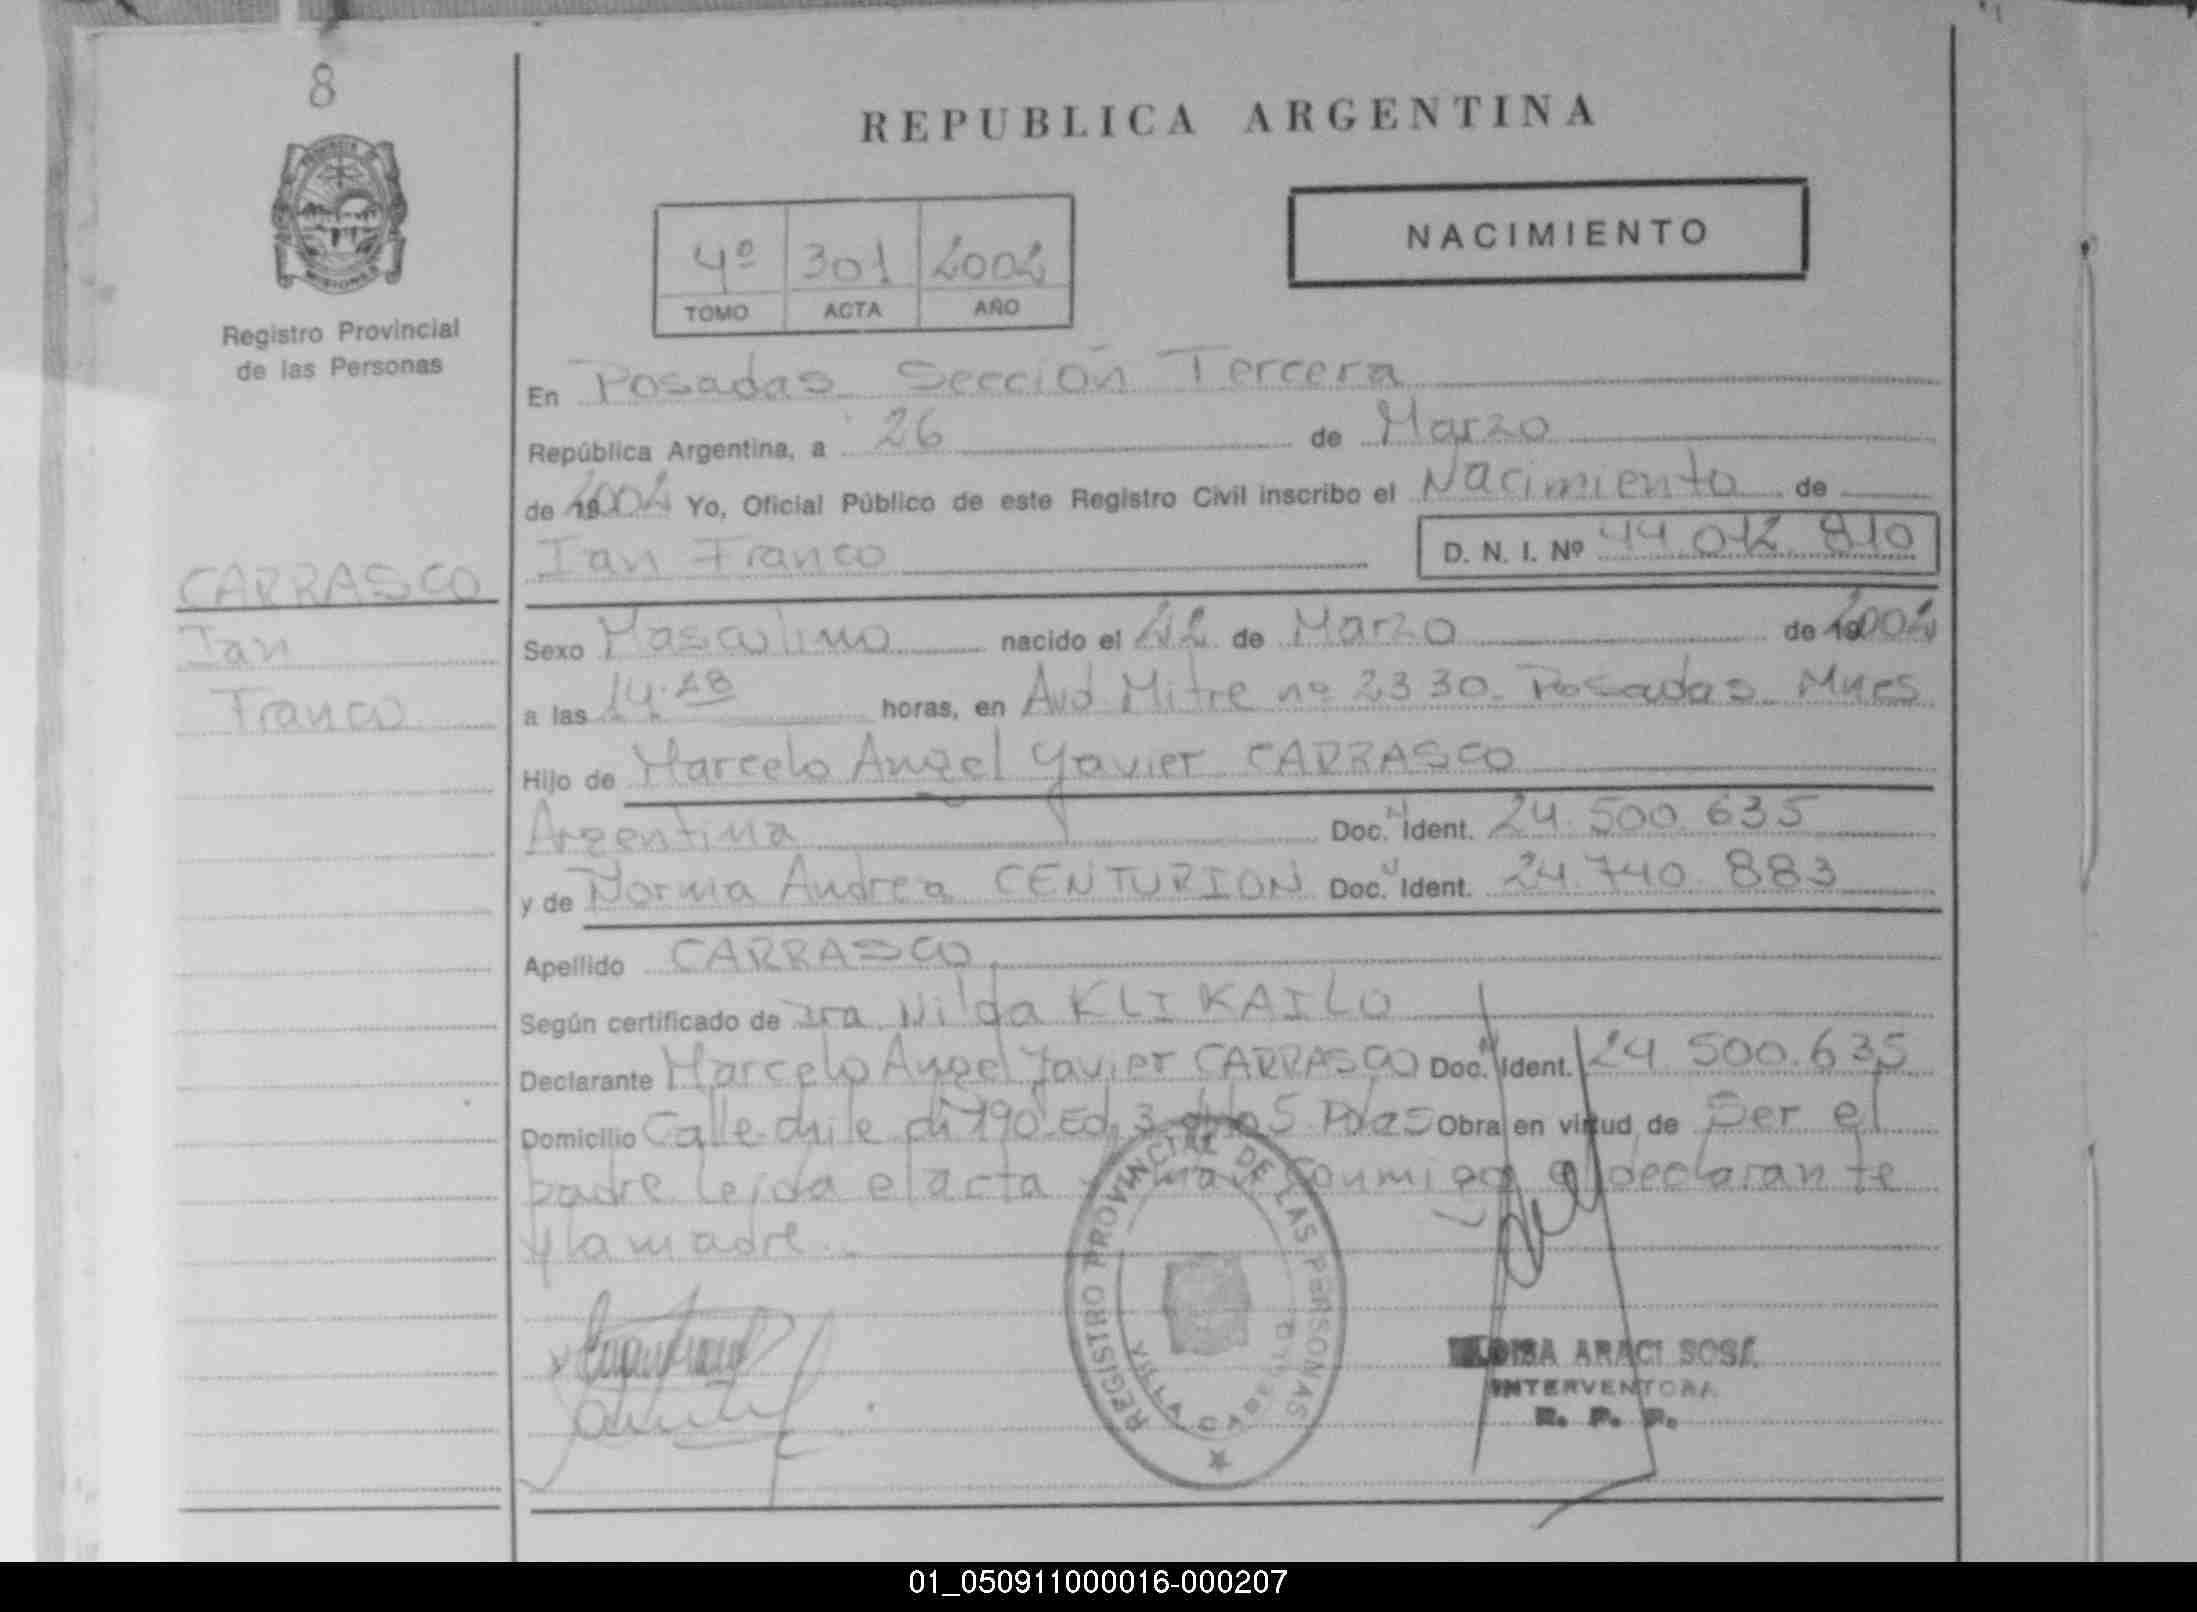 8
REPUBLICA ARGENTINA
NACIMIENTO
4º 301 2002
TOMO ACTA AÑO
Registro Provincial
de las Personas
En Posadas Sección Tercera
República Argentina, a 26 de Marzo
de 2002 Yo, Oficial Público de este Registro Civil inscribo el Nacimiento de
Ian Franco
D. N. I. Nº 44 012 810
CARRASCO
Ian
Franco
Sexo Masculino nacido el 22 de Marzo de 2002
a las 14.28 horas, en Avd Mitre nº 2330 Posadas Mnes
Hijo de Marcelo Angel Yavier CARRASCO
Argentina Doc. Ident. 24.500.635
y de Norma Andrea CENTURION Doc. Ident. 24.740.883
Apellido CARRASCO
Según certificado de Dra. Nilda KLIKAILO
Declarante Marcelo Angel Yavier CARRASCO Doc. Ident. 24.500.635
Domicilio Calle chile 190 Ed. 3 dto 5 Pdas Obra en virtud de Ser el
padre leida el acta conmigo el declarante
y la madre.
REGISTRO PROVINCIAL DE LAS PERSONAS
VILLA CABELLO
ARACI SOSA
INTERVENTORA
R. P. P.
01_050911000016-000207